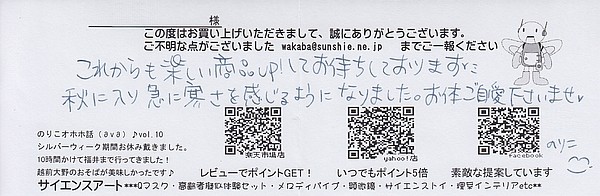 様
この度はお買い上げいただきまして、誠にありがとうございます。
ご不明な点がございました wakaba@sunshie.ne.jp までご一報ください
これからも楽しい商品UP!してお待ちしております
秋に入り急に寒さを感じるようになりました。お体ご自愛下さいませ
のりこオホホ話(ava)♪vol.10
シルバーウィーク期間お休み戴きました。
10時間かけて福井まで行ってきました！
越前大野のおそばが美味しかったです♪
楽天市場店
yahoo!店
Facebook
のりこ
レビューでポイントGET！
いつでもポイント5倍
素敵な提案しています
サイエンスアート***Qマスク・高齢者擬似体験セット・メロディパイプ・顕微鏡・サイエンストイ・理英インテリアetc**